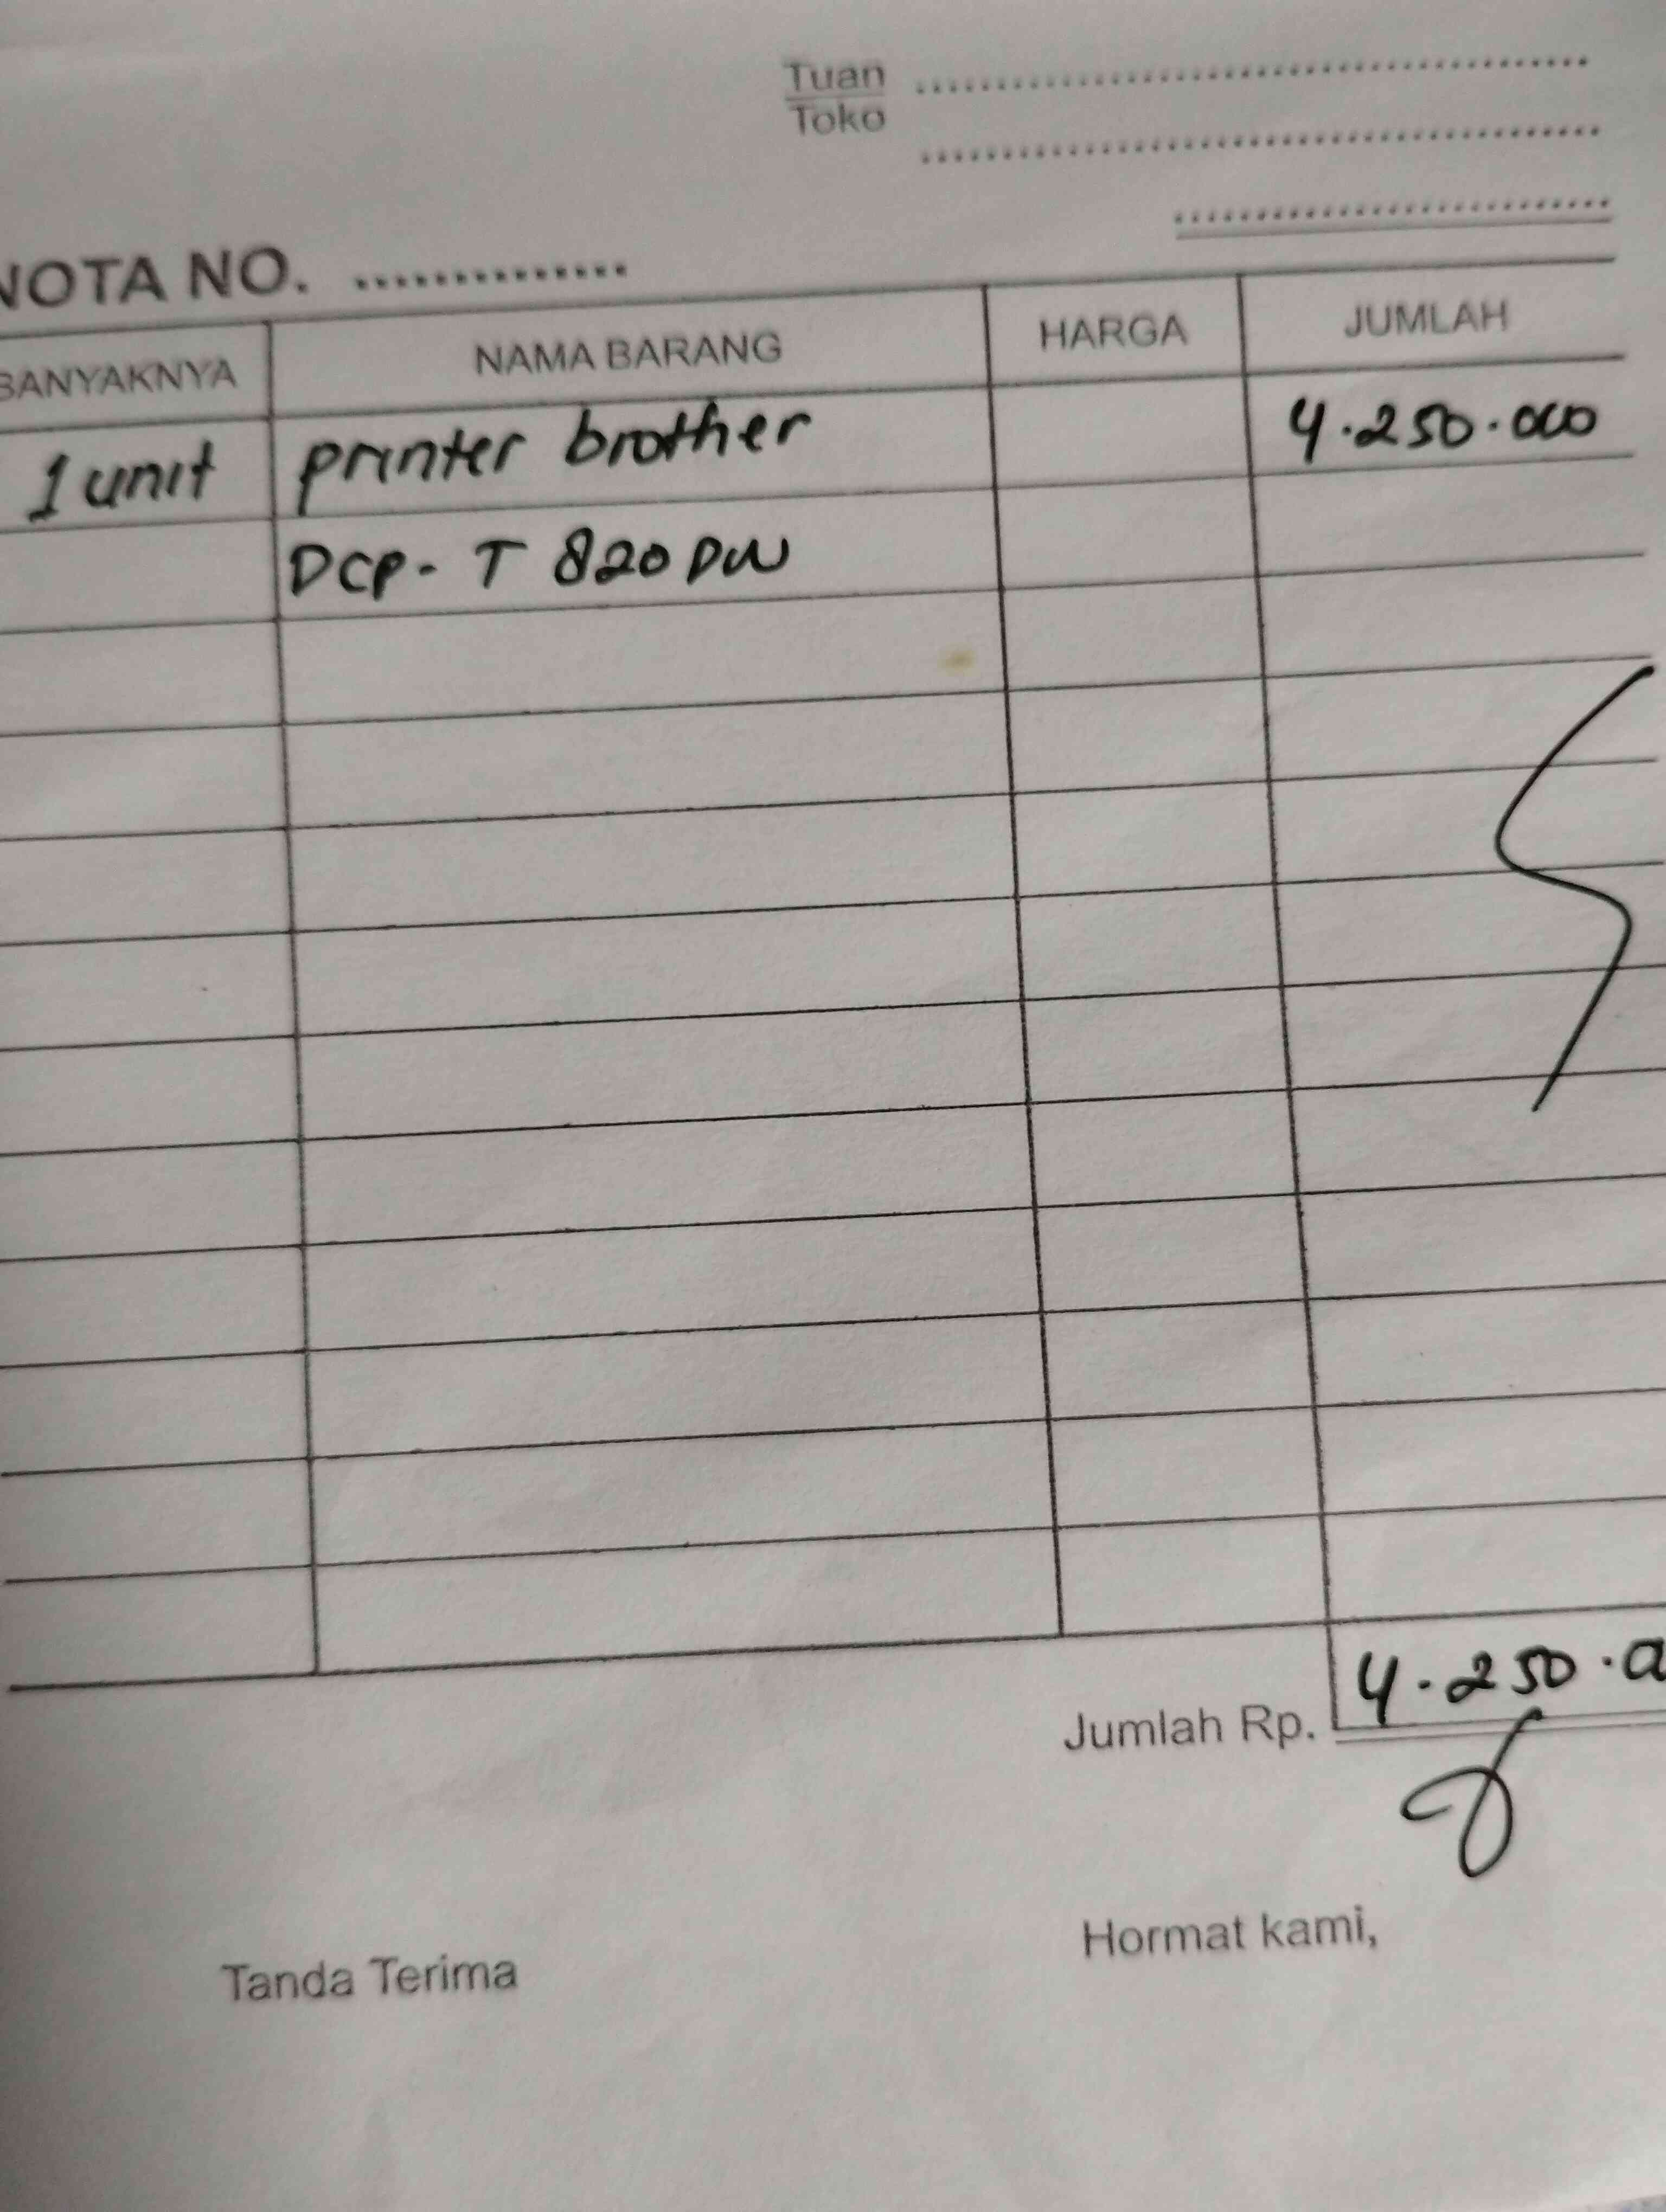 Tuan
Toko
NOTA NO. ..............
BANYAKNYA NAMA BARANG HARGA JUMLAH
1 unit printer brother 4.250.000
DCP- T 820 DW
Jumlah Rp. 4.250.
Tanda Terima Hormat kami,